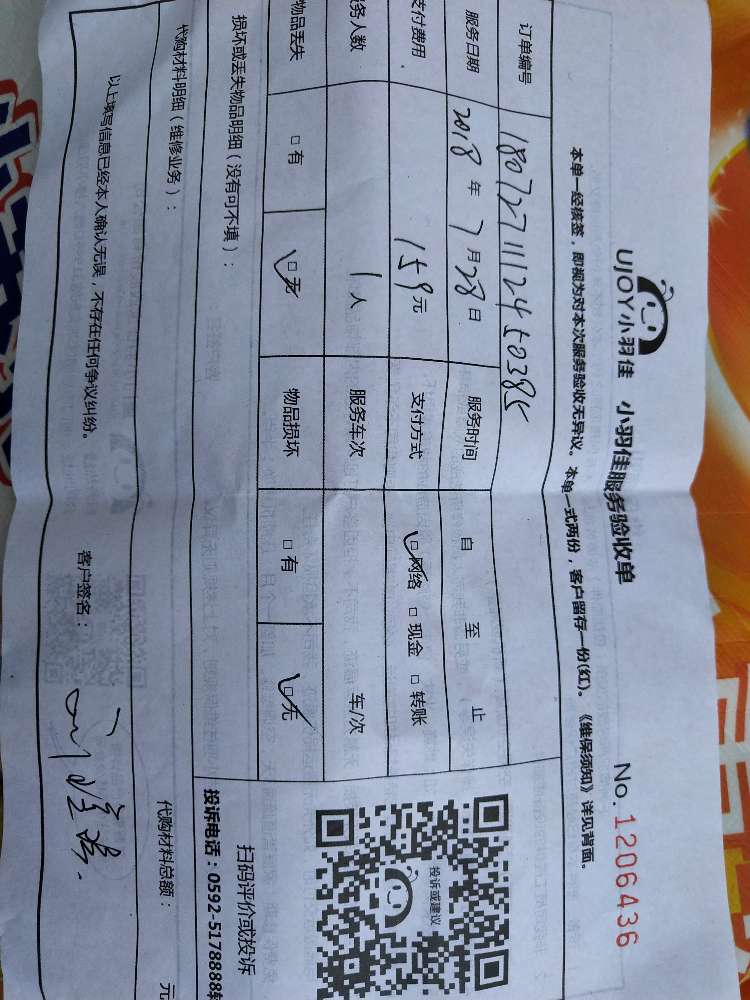 UJOY小羽佳 小羽佳服务验收单 No.1206436
本单一经核签，即视为对本次服务验收无异议。本单一式两份，客户留存一份(红)。《维保须知》详见背面。
订单编号 1807271112450385
服务日期 2018 年 7 月 28 日 服务时间 自 至 止
支付费用 159 元 支付方式 □网络 □现金 □转账
务人数 1 人 服务车次 车/次
物品丢失 □有 □无 物品损坏 □有 □无
损坏或丢失物品明细（没有可不填）：
代购材料明细（维修业务）： 代购材料总额： 元
投诉或建议
扫码评价或投诉
投诉电话：0592-5178888转
以上填写信息已经本人确认无误，不存在任何争议纠纷。 客户签名：